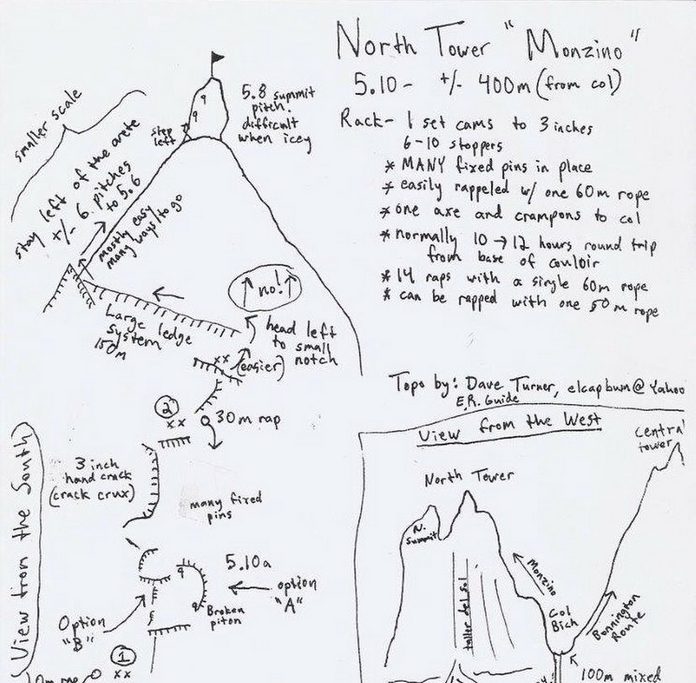 North Tower "Monzino"
5.10- +/- 400m (from col)
Rack- 1 set cams to 3 inches
6-10 stoppers
* MANY fixed pins in place
* easily rappeled w/ one 60m rope
* one axe and crampons to col
* normally 10 → 12 hours round trip
from base of couloir
* 14 raps with a single 60m rope
* can be rapped with one 50m rope
Topo by: Dave Turner, elcapbum@Yahoo
E.R. Guide
smaller scale
5.8 summit
pitch.
difficult
when icey
step
left
stay left of the arete
+/- 6 pitches
to 5.6
mostly easy
many ways to go
↑ no! ↑
Large ledge
system
150m
head left
to small
notch
xx
(easier)
2
xx
30m rap
3 inch
hand crack
(crack crux)
many fixed
pins
5.10a
option
"A"
Broken
piton
Option
"B"
1
xx
View from the South
View from the West
Central
tower
North Tower
N.
Summit
taller del sol
Monzino
Col
Bich
Bonnington
Route
100m mixed